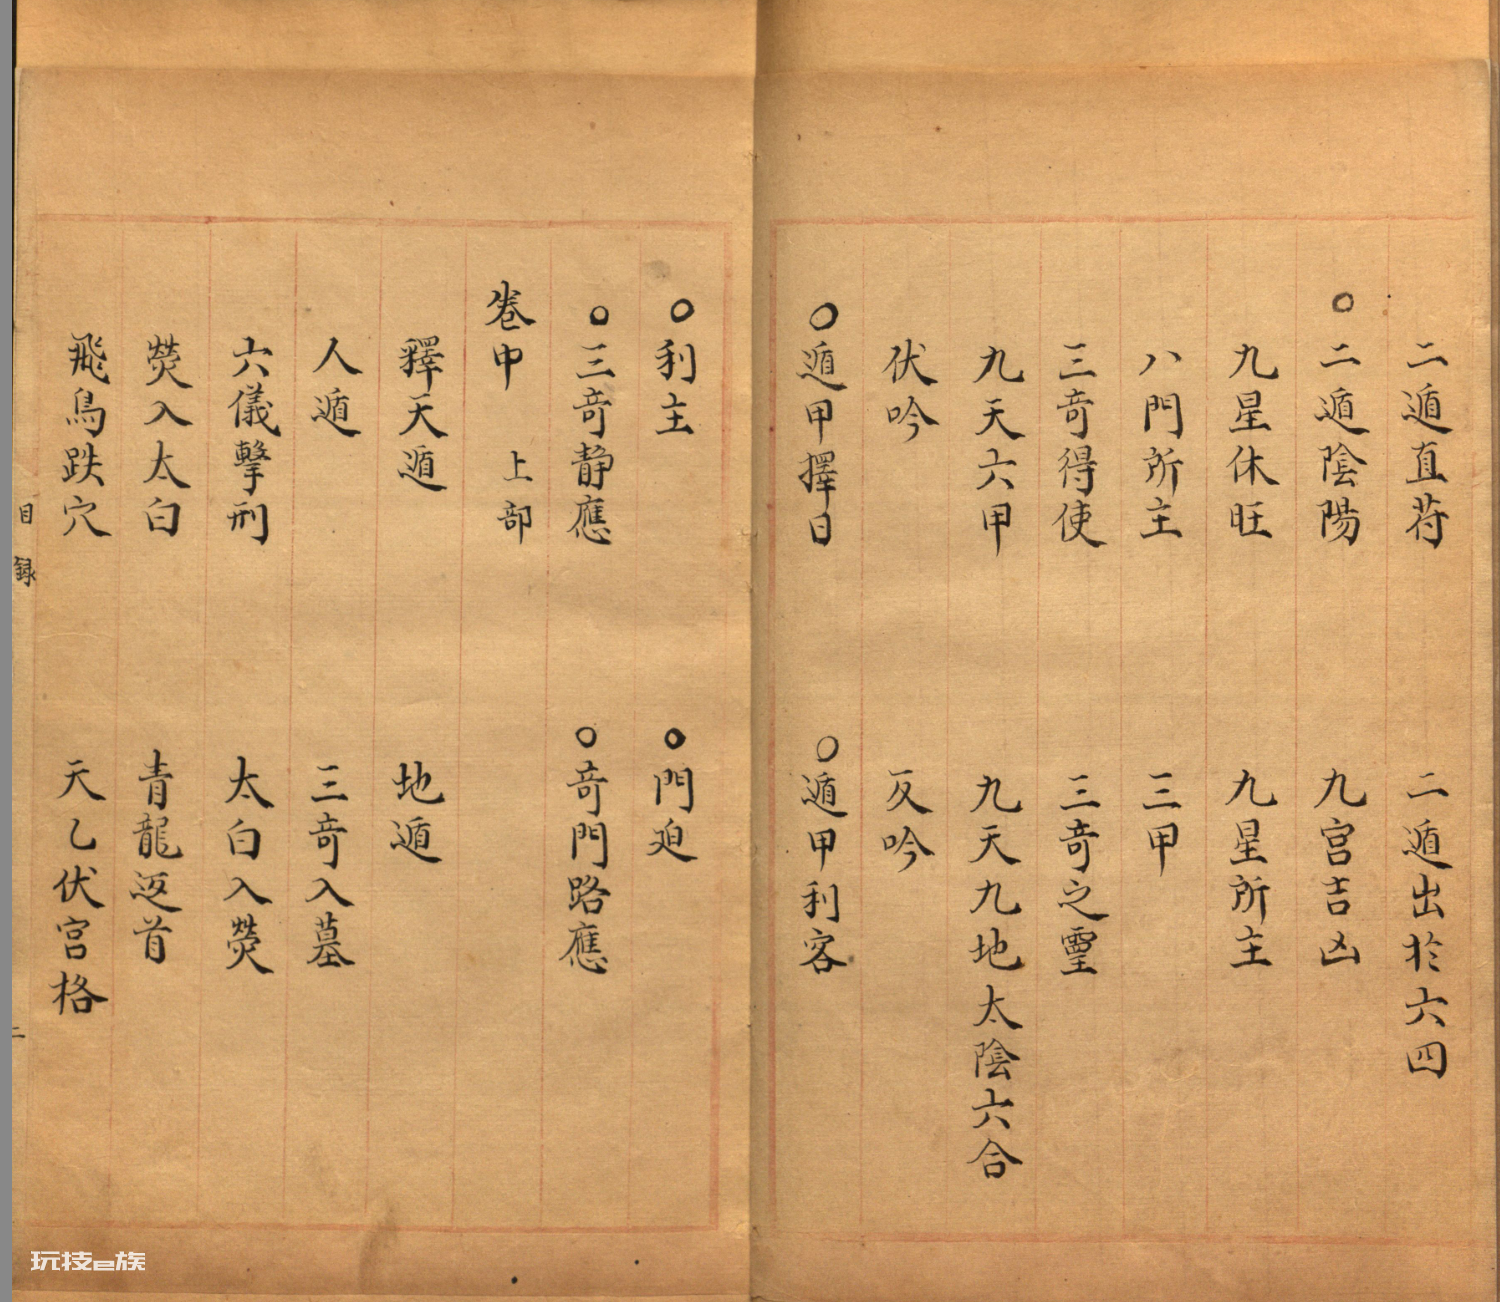 二遁直苻　二遁出扵六四
○二遁陰陽　九宮吉凶
九星休旺　九星所主
八門所主　三甲
三竒得使　三竒之𤫊
九天六甲　九天九地太陰六合
伏吟　反吟
○遁甲擇日　○遁甲利客
○利主　○門迫
○三竒静應　○竒門路應
卷中　上部
釋天遁　地遁
人遁　三竒入墓
六儀擊刑　太白入熒
熒入太白　青龍返首
飛鳥跌穴　天乙伏宮格
目録
二
玩技e族